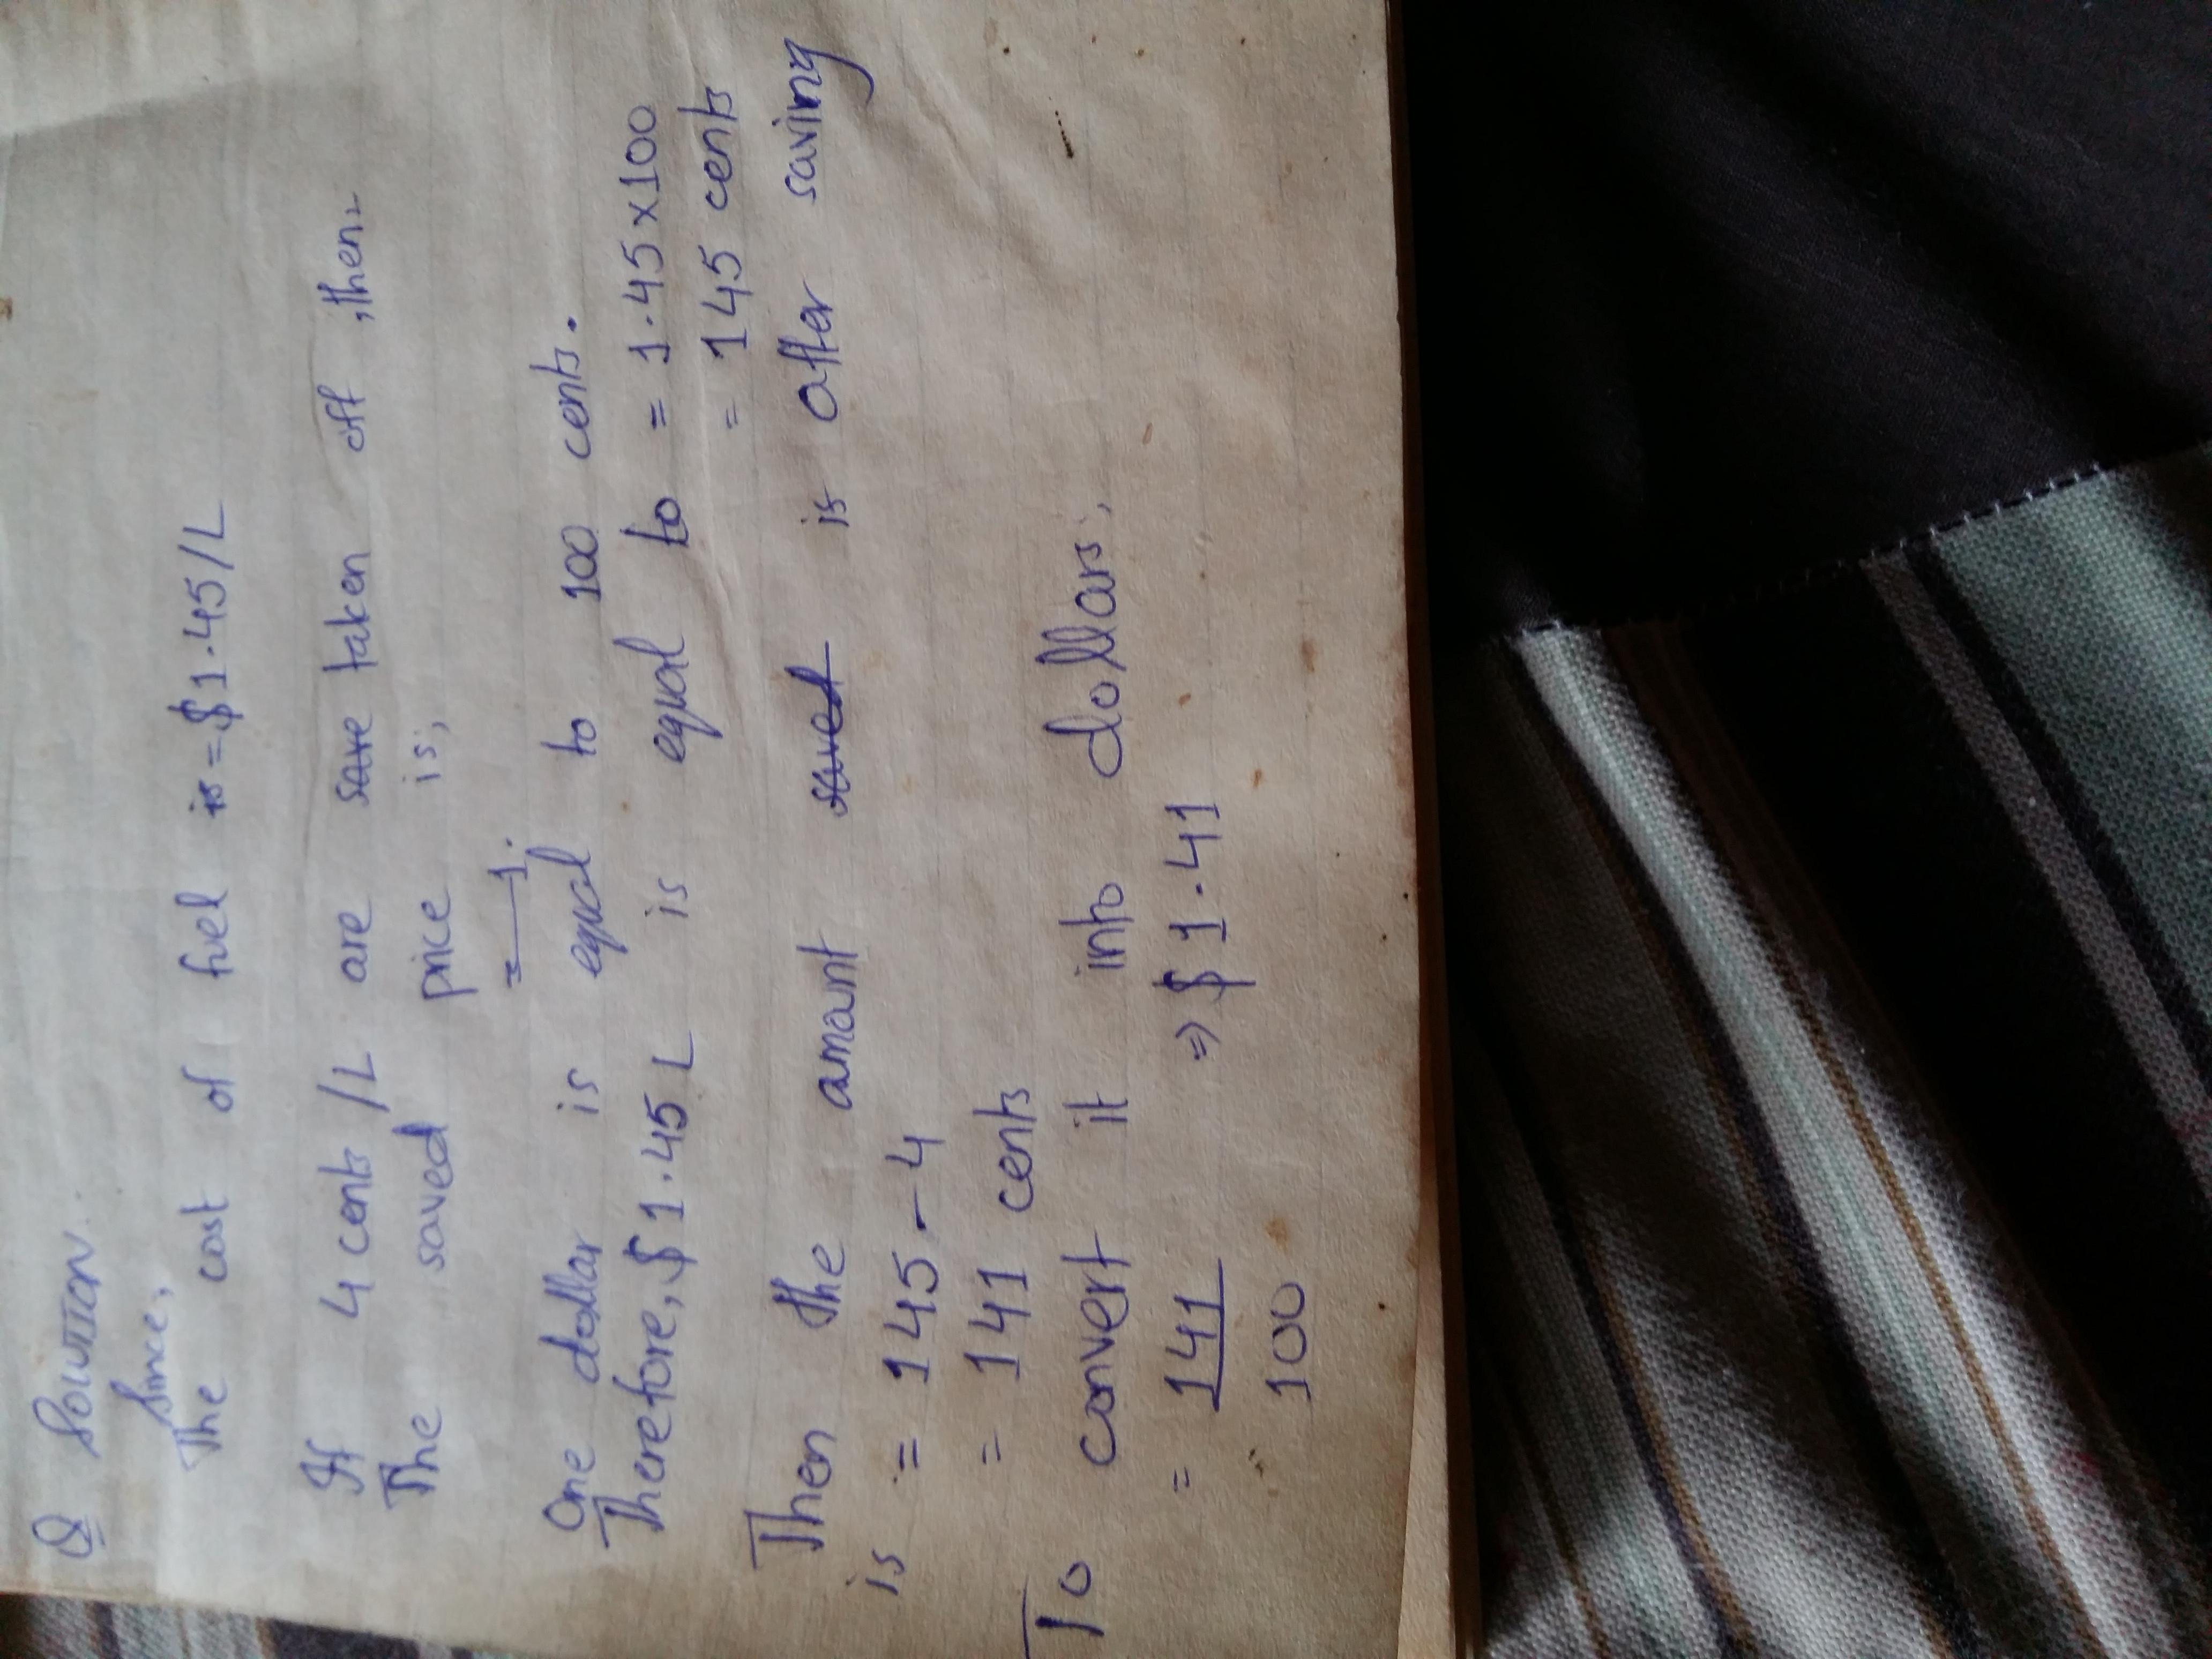 Q Solution.
Since,
The cost of fuel is = $1.45/L
If 4 cents/L are save taken off, then
The saved price is,
= 1.
One dollar is equal to 100 cents.
Therefore, $1.45 L is equal to = 1.45x100
= 145 cents
Then the amant saved is after saving
is = 145-4
= 141 cents
To convert it into dollars,
= 141 ⇒ $1.41
100